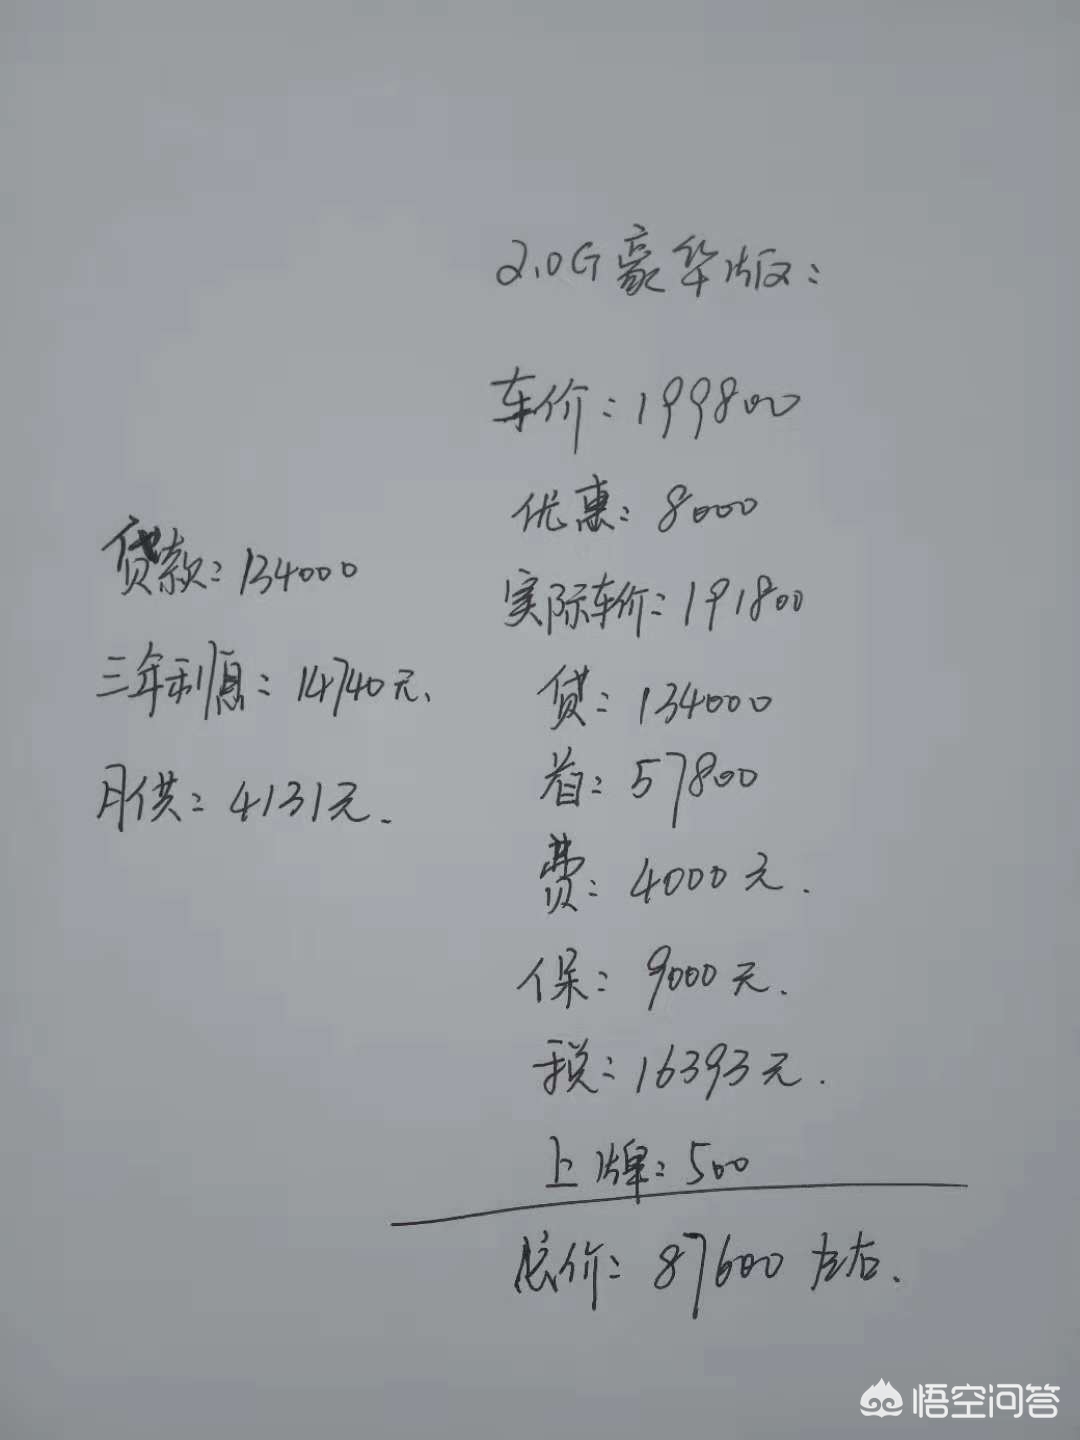 2.0G豪华版：
车价：199800
优惠：8000
实际车价：191800
贷：134000
首：57800
费：4000元.
保：9000元.
税：16393元.
上牌：500
总价：87600左右.
贷款：134000
三年利息：14740元、
月供：4131元.
悟空问答